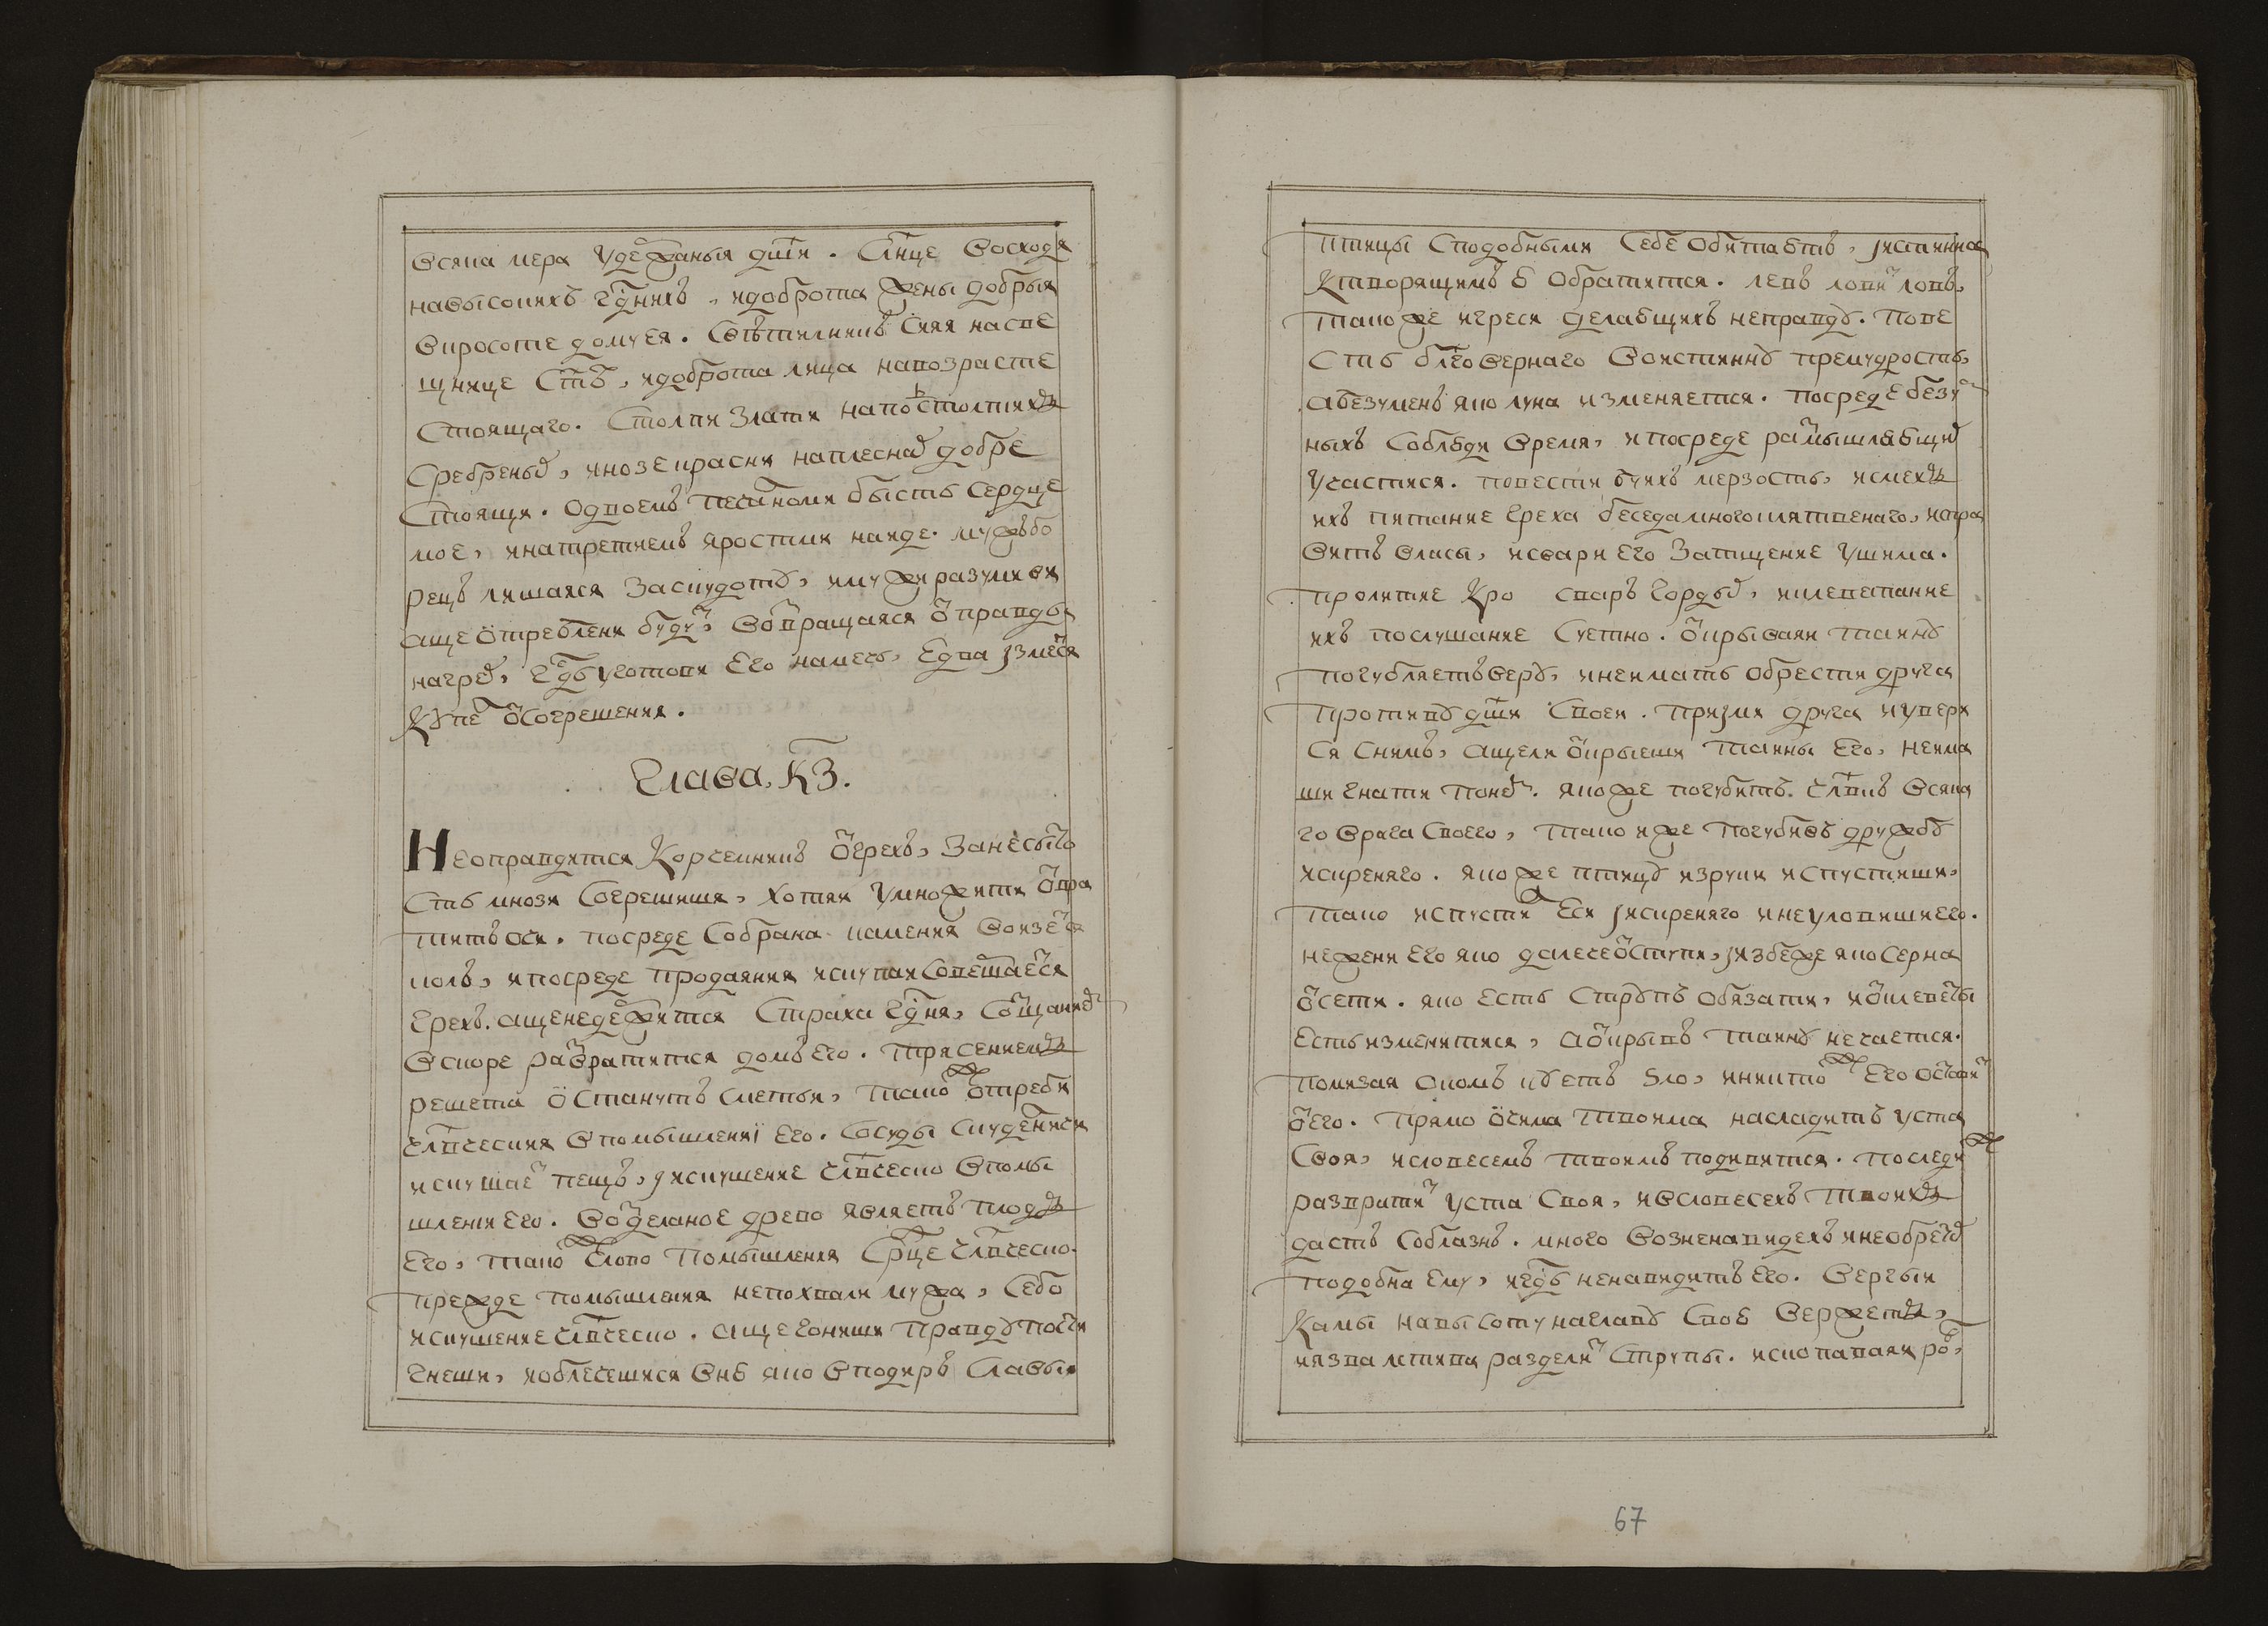 всяка мера удержаныя дши. Слнце восходя
нависокихъ гднихъ, идоброта жены добрыя
вкрасоте дому ея. Светилникъ сияя насве
щнице стѣ, идоброта лица навозрасте
стоящаго. Столпи злати напостолпихъ
сребреныхъ, инозе красни наплеснахъ добре
стоящи. Одвоемъ печално ми бысть сердце
мое, инатретиемъ яростми наиде. мужъ бо
рецъ лишаяся заскудотю, имужи разумиви
аще отреблени будут, возвращаяся отправды
нагрех, гдь уготови его намечь. Едва измется
купец отсогрешения.
Глава, КЗ.
Неоправдится корчемникъ отгрехъ, Занесыто
сть мнози согрешиша, хотяи умножити отвра
тить очи. посреде собрана камения вонзется
колъ, ипосреде продаяния искупаи совещается
грехъ. ащенедержится страха гдня, сотщаниемъ
вскоре развратится домъ его. трясениемъ
решета останутъ сметьи, тако же отреби
члвческия впомышлениі его. Сосуды скуделничи
искушает пещъ, искушение члвческо впомы
шлении его. Возделаное древо являетъ плодъ
его, тако же слово помышления срдце члвческо.
прежде помышления непохвали мужа, себо
искушение члвческо. аще гониши правду пости
гнеши, иоблечешися вню яко вподиръ славы
птицы сподобными себе обитаютъ, иистинна
ктворящимъ ю обратится. левъ ловит ловъ,
такоже игреси делающихъ неправду. Пове
сть блговернаго воистинну премудрость,
абезуменъ яко луна изменяется. посреде безум
ныхъ соблюди время, ипосреде размышляющих
участися. повести буихъ мерзость, исмехъ
ихъ питание греха беседа многоклятвенаго, испра
вить власы, исвари его затщение ушима.
пролитие кро сваръ гордых, иклеветание
ихъ послушание суетно. открываяи таину
погубляетъ веру, инеимать обрести друга
противу дши своеи. приими друга иувери
ся снимъ, ащели открыеши таины его, неима
ши гнати поне. якоже погубитъ члвкъ всяка
го врага своего, тако иже погубивъ дружбу
искреняго. якоже птицу изруки испустиши,
тако испустил еси искреняго инеуловиши его.
нежени его яко далече отступи, избеже яко серна
отсети. яко есть струпъ обязати, иотклеветы
есть изменитися, аоткрывъ таину нечается.
помизая окомъ куетъ зло, иникто же его оставит
отего. прямо очима твоима насладитъ уста
своя, исловесемъ твоимъ подивится. последи же
развратит уста своя, ивсловесехъ твоихъ
дастъ соблазнъ. много возненавидехъ инеобретох
подобна ему, игдь ненавидитъ его. Вергыи
камы навысоту наглаву свою вержетъ,
иязва лстива разделит струпы. ископаваяи ро,
67